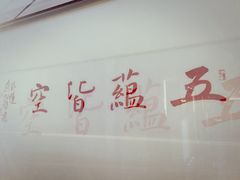 五蘊皆空